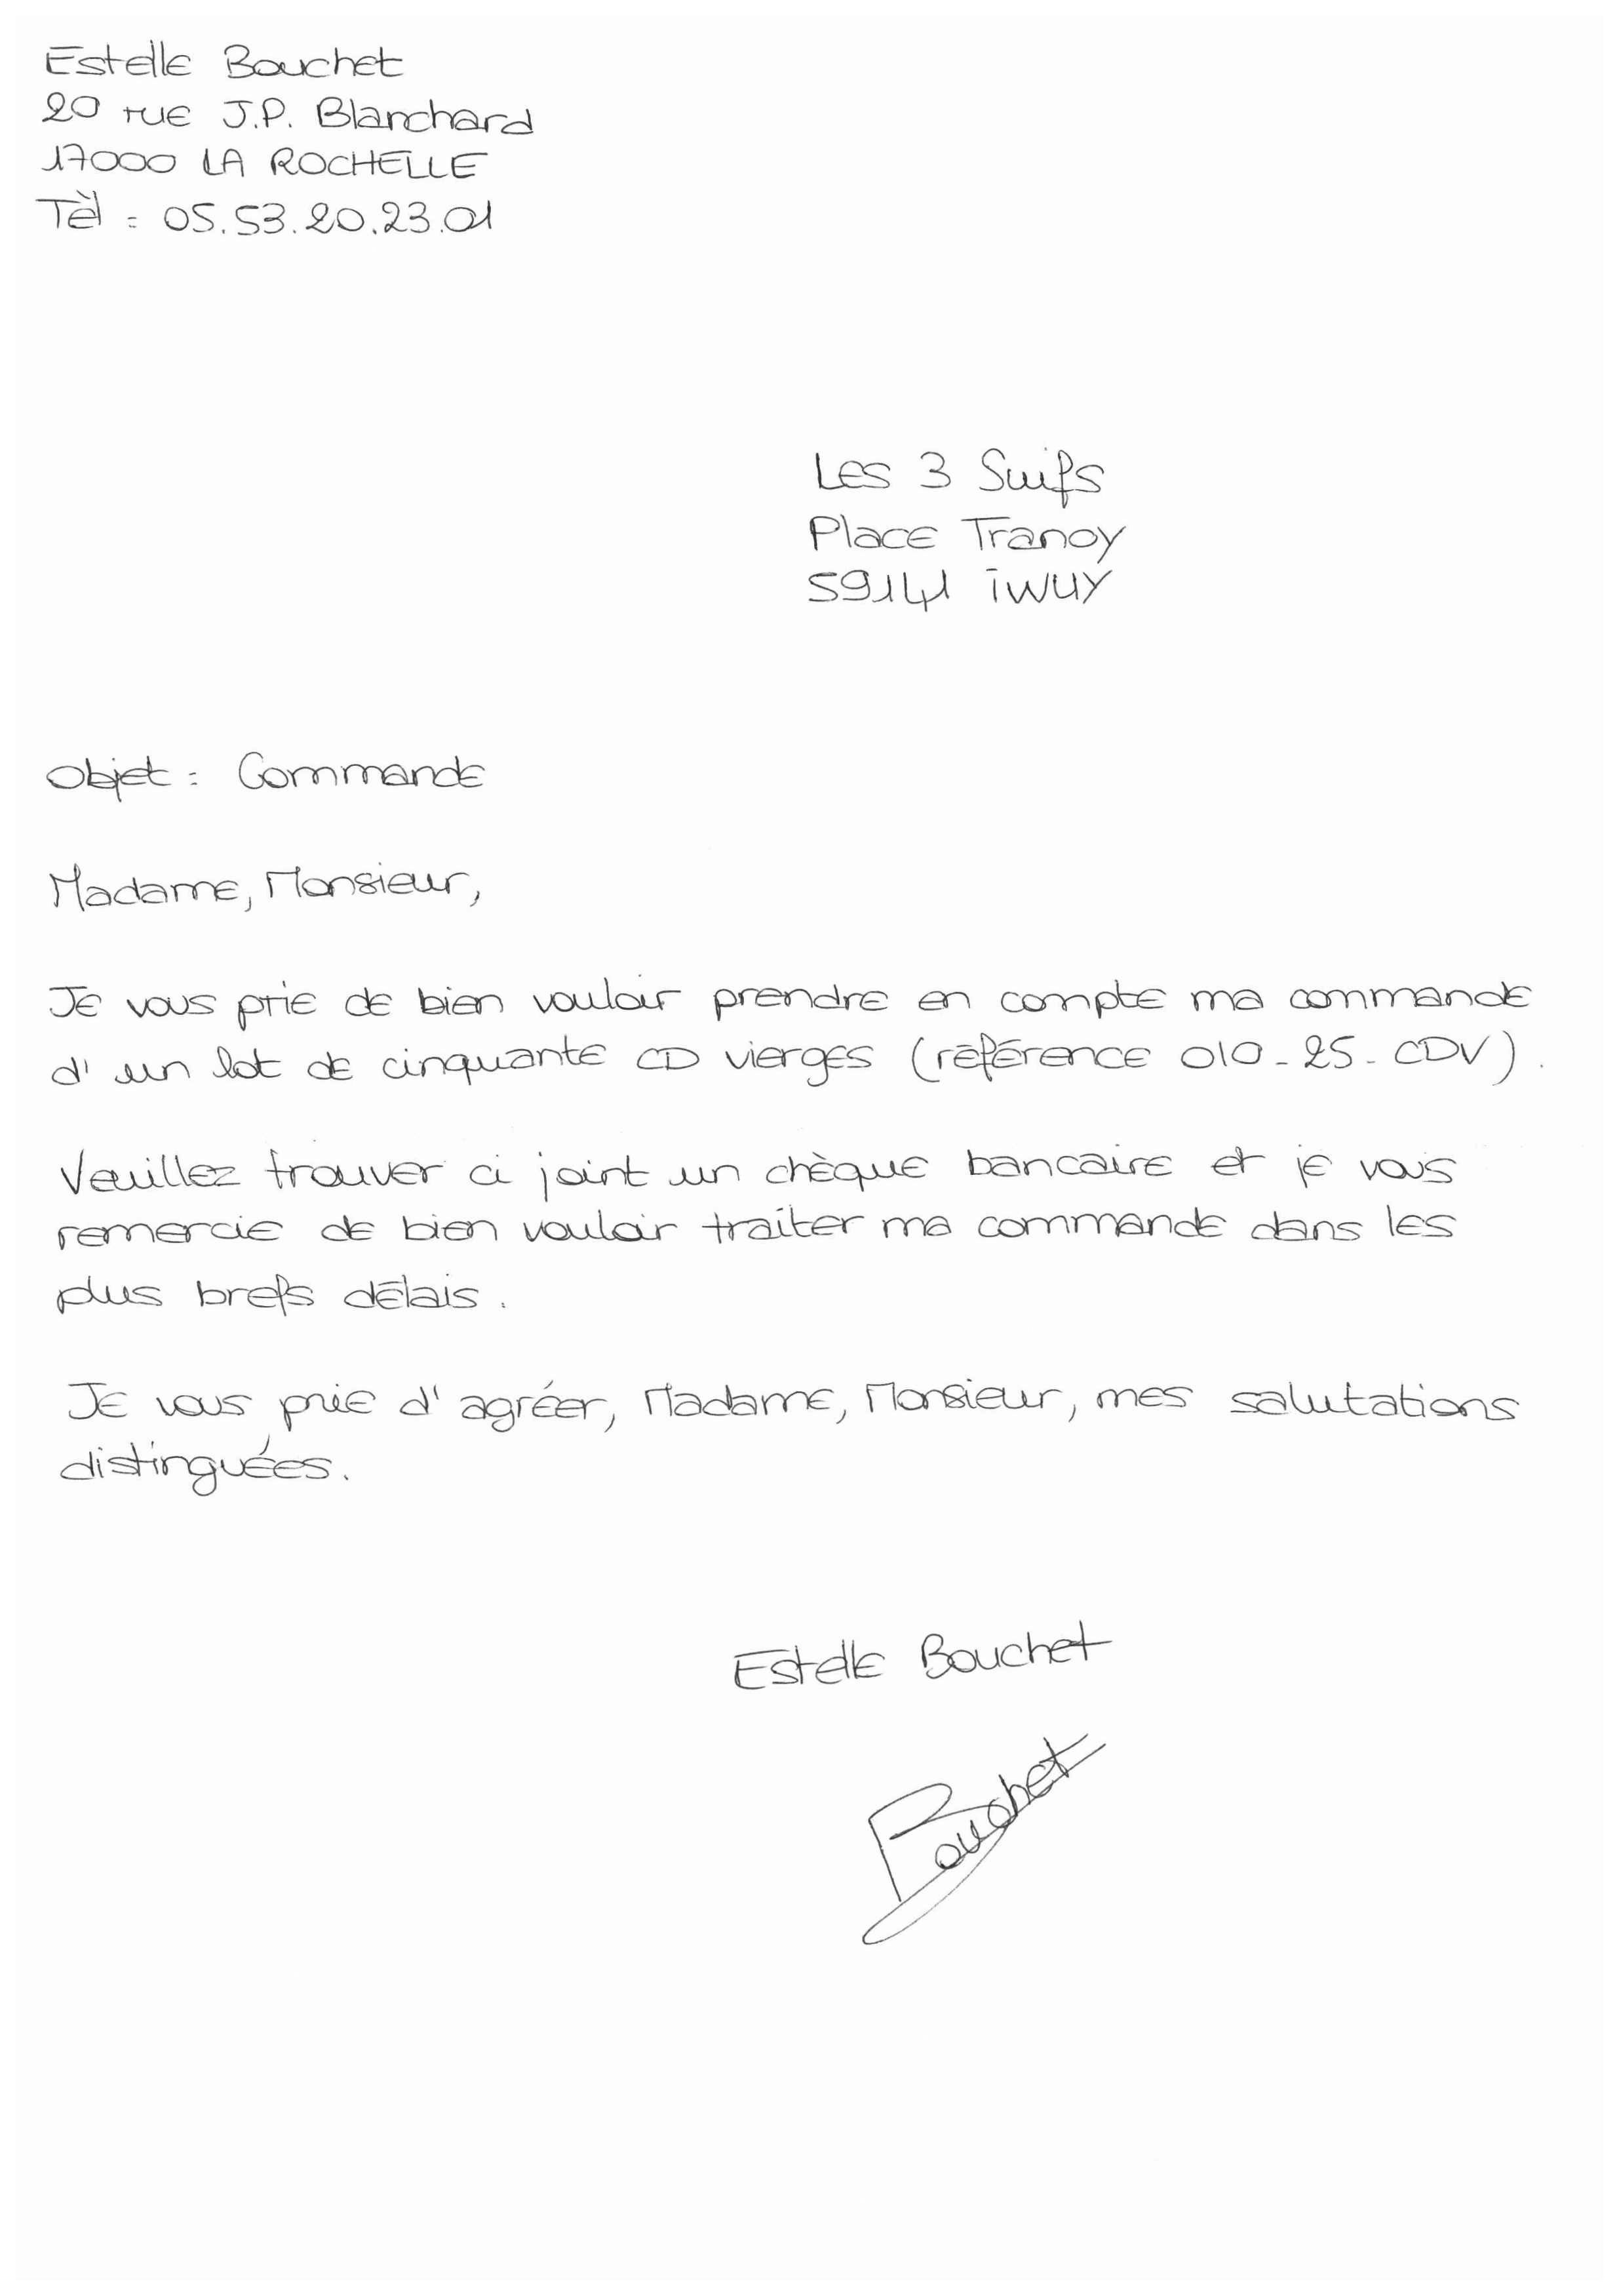 Estelle Bouchet
20 rue J.P. Blanchard
17000 LA ROCHELLE
Tèl : 05.53.20.23.01
Les 3 Suifs
Place Tranoy
59141 iWUY
Objet : Commande
Madame, Monsieur,
Je vous prie de bien vouloir prendre en compte ma commande
d'un lot de cinquante CD vierges (référence 010-25-CDV).
Veuillez trouver ci joint un chèque bancaire et je vous
remercie de bien vouloir traiter ma commande dans les
plus brefs délais.
Je vous prie d'agréer, Madame, Monsieur, mes salutations
distinguées.
Estelle Bouchet
Bouchet